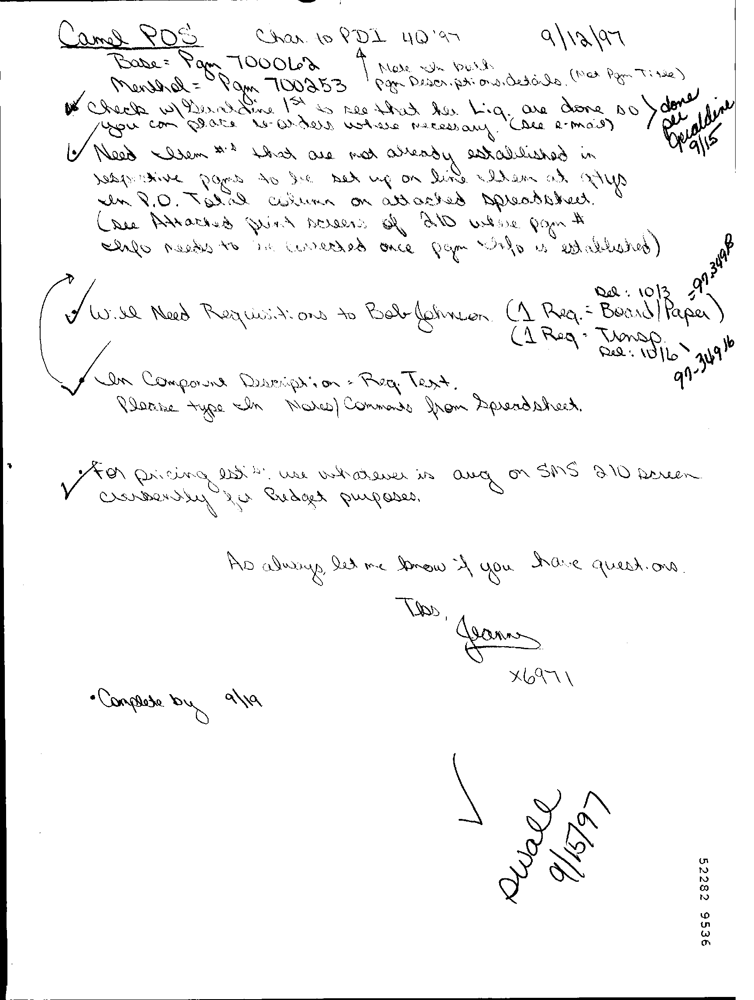 Camel POS Chan. to PDI 4Q'97 9/12/97
Base = Pgm 700062
Menthol = Pgm 700253
Note in both
Pgm Descriptions details. (Not Pgm Title)
Check w/ Geraldine 1st to see that her Liq. are done so
you can place re-orders where necessary. (see e-mail)
done
per
Geraldine
9/15
Need Item #'s that are not already established in
respective pgms to be set up on line item at qtys
In P.O. Total column on attached spreadsheet.
(see Attached print screens of 210 where pgm #
Info needs to be corrected once pgm info is established)
Will Need Requisitions to Bob Johnson (1 Req. = Board/Paper)
Del: 10/3
(1 Req. = Transp.
Del: 10/6
In Component Description = Req. Text.
Please type In Notes/Comments from Spreadsheet.
• For pricing est use whatever is avg on SMS 210 screen
currently for Budget purposes.
As always, let me know if you have questions.
Jeanny
x6971
• Complete by 9/19
9/15/97
52282 9536